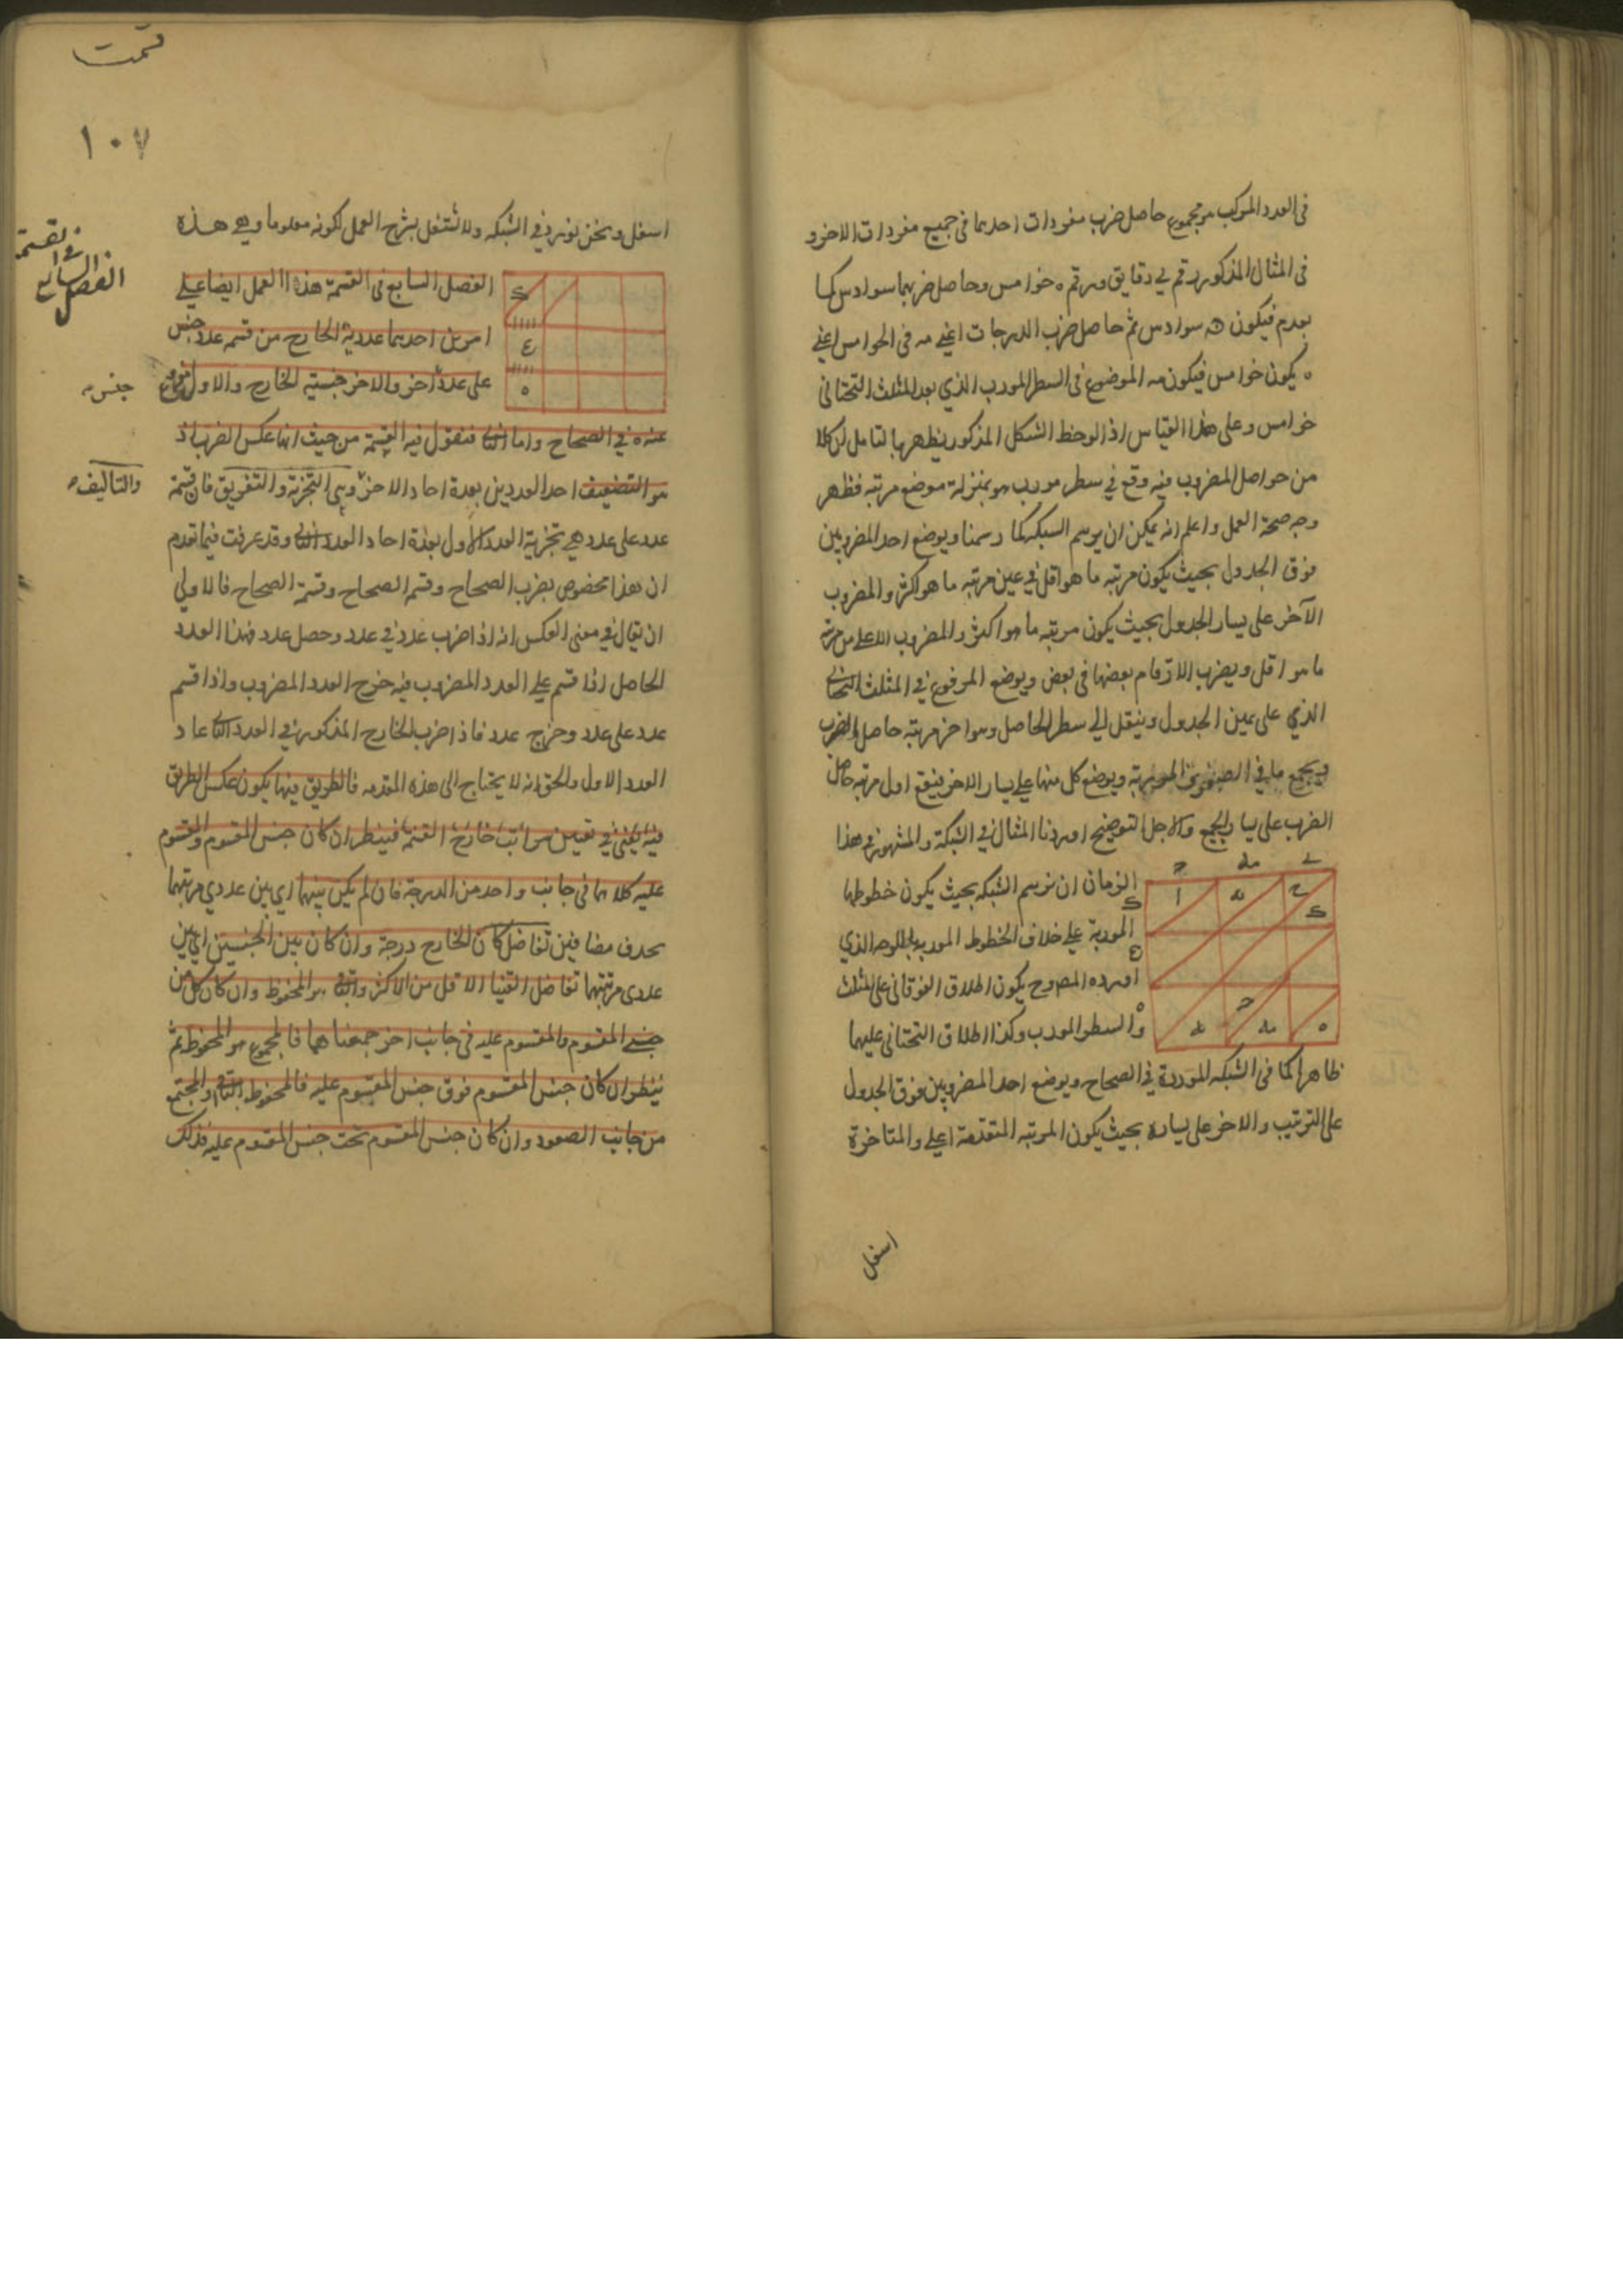 في العدد المركب هو مجموع حاصل ضرب مفردات احدهما في جميع مفردات الاخر و
في المثال المذكور رقم لي دقايق ورقم ه خوامس وحاصل ضربهما سوادس كما
بعدم فيكون سوادس ثم حاصل ضرب الدرجات اعني مه في الخوامس اعني
ه يكون خوامس فيكون مه الموضوع في السطر المورب الذي بعد المثلث التحتاني
خوامس وعلى هذا القياس اذا لوحظ الشكل المذكور يظهر بالتامل ان كلا
من حواصل المضروب فيه وقع في سطر مورب هو بمنزلة موضع مرتبه فظهر
وجه صحة العمل واعلم انه يمكن ان يرسم الشبكه كما رسمنا ويوضع احد المضروبين
فوق الجدول بحيث يكون مرتبه ما هو اقل في عين مرتبه ما هو اكثر والمضروب
الآخر على يسار الجدول بحيث يكون مرتبه ما هو اكثر والمضروب الاعلى من مرتبه
ما هو اقل ويضرب الارقام بعضها في بعض ويوضع المرفوع في المثلث التحتاني
الذي على يمين الجدول وينقل الى سطر الحاصل وهو اخر مرتبه حاصل الضرب
ويجمع ما في الصفوف الموربة ويوضع كل منها على يسار الاخر فيقع اول مرتبه حاصل
الضرب على يسار الجميع ولاجل التوضيح اوردنا المثال في الشبكة والمشهور في هذا
الزمان ان نرسم الشبكه بحيث يكون خطوطها
الموربة على خلاف الخطوط الموربة بالوجه الذي
اورده المصنف يكون اطلاق الفوقاني على المثلث
والسطر المورب وكذا اطلاق التحتاني عليهما
ظاهرا كما في الشبكه الموردة في الصحاح ويوضع احد المضروبين فوق الجدول
على الترتيب والاخر على يساره بحيث يكون المرتبه المتقدمة اعلى والمتاخرة
اسفل
قسمت
١٠٧
اسفل ونحن نورد في الشبكه ولا نشتغل بشرح العمل لكونه معلوما وهي هذه
الفصل السابع في القسمة هذا العمل ايضا على
امرين احدهما عددية الخارج من قسمه عدد جنس
على عدد آخر والاخر جنسيته الخارج والاول
عنه في الصحاح واما الثاني فنقول فيه القسمة من حيث انها عكس الضرب اذ
هو التضعيف احد العددين بعدة احاد الاخر وهي التجزئة والتفريق فان قسمة
عدد على عدد هي تجزية العدد الاول بعدة احاد العدد الثاني وقد عرفت فيما تقدم
ان هذا مخصوص بضرب الصحاح وقسمة الصحاح فالاولى
ان يقال في معنى العكس انه اذا ضرب عدد في عدد وحصل عدد فهذا العدد
الحاصل اذا قسم على العدد المضروب فيه خرج العدد المضروب واذا قسم
عدد على عدد وخرج عدد فاذا ضرب الخارج المذكور في العدد الثاني عاد
العدد الاول والحق انه لا يحتاج الى هذه المقدمه فالطريق فيها يكون عكس الطريق
فيه يعني في تعيين مراتب خارج القسمة فينظر ان كان جنس المقسوم والمقسوم
عليه كلاهما في جانب واحد من الدرجة فان لم يكن بينهما اي بين عددي مرتبتهما
بحذف مضافين تفاضل كان الخارج درجة وان كان بين الجنسين اي بين
عددي مرتبتهما تفاضل القينا الاقل من الاكثر والباقي هو المحفوظ وان كان كل من
جنسي المقسوم والمقسوم عليه في جانب اخر جمعناهما فالمجموع هو المحفوظ ثم
ينظر ان كان جنس المقسوم فوق جنس المقسوم عليه فالمحفوظ الباقي او المجتمع
من جانب الصعود وان كان جنس المقسوم تحت جنس المقسوم عليه فذلك
الفصل السابع في القسمة
جنس
والتاليف